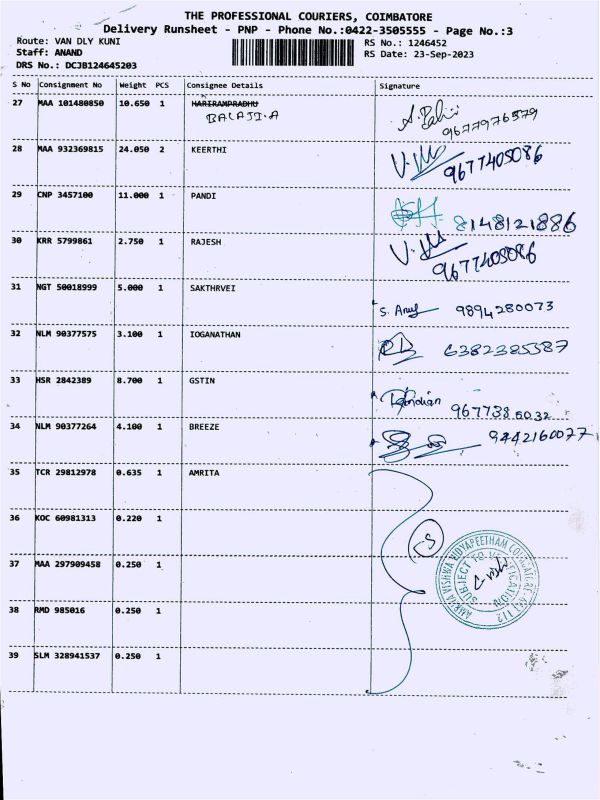 THE PROFESSIONAL COURIERS, COIMBATORE
Delivery Runsheet - PNP - Phone No.:0422-3505555 - Page No.:3
Route: VAN DLY KUNI RS No.: 1246452
Staff: ANAND RS Date: 23-Sep-2023
DRS No.: DCJB124645203
S No Consignment No Weight PCS Consignee Details Signature
27 MAA 101480850 10.650 1 HARIRAMPRADHU
BALAJI.A 9677976579
28 MAA 932369815 24.050 2 KEERTHI 9677405086
29 CNP 3457100 11.000 1 PANDI 8148121886
30 KRR 5799861 2.750 1 RAJESH 9677405086
31 NGT 50018999 5.000 1 SAKTHRVEI S. Arul 9894280073
32 NLM 90377575 3.100 1 IOGANATHAN 6382385587
33 HSR 2842389 8.700 1 GSTIN
34 NLM 90377264 4.100 1 BREEZE 9442160077
35 TCR 29812978 0.635 1 AMRITA
36 KOC 60981313 0.220 1
5
37 MAA 297909458 0.250 1
AMRITA VISHWA VIDYAPEETHAM
SUBJECT TO VERIFICATION
38 RMD 985016 0.250 1
39 SLM 328941537 0.250 1